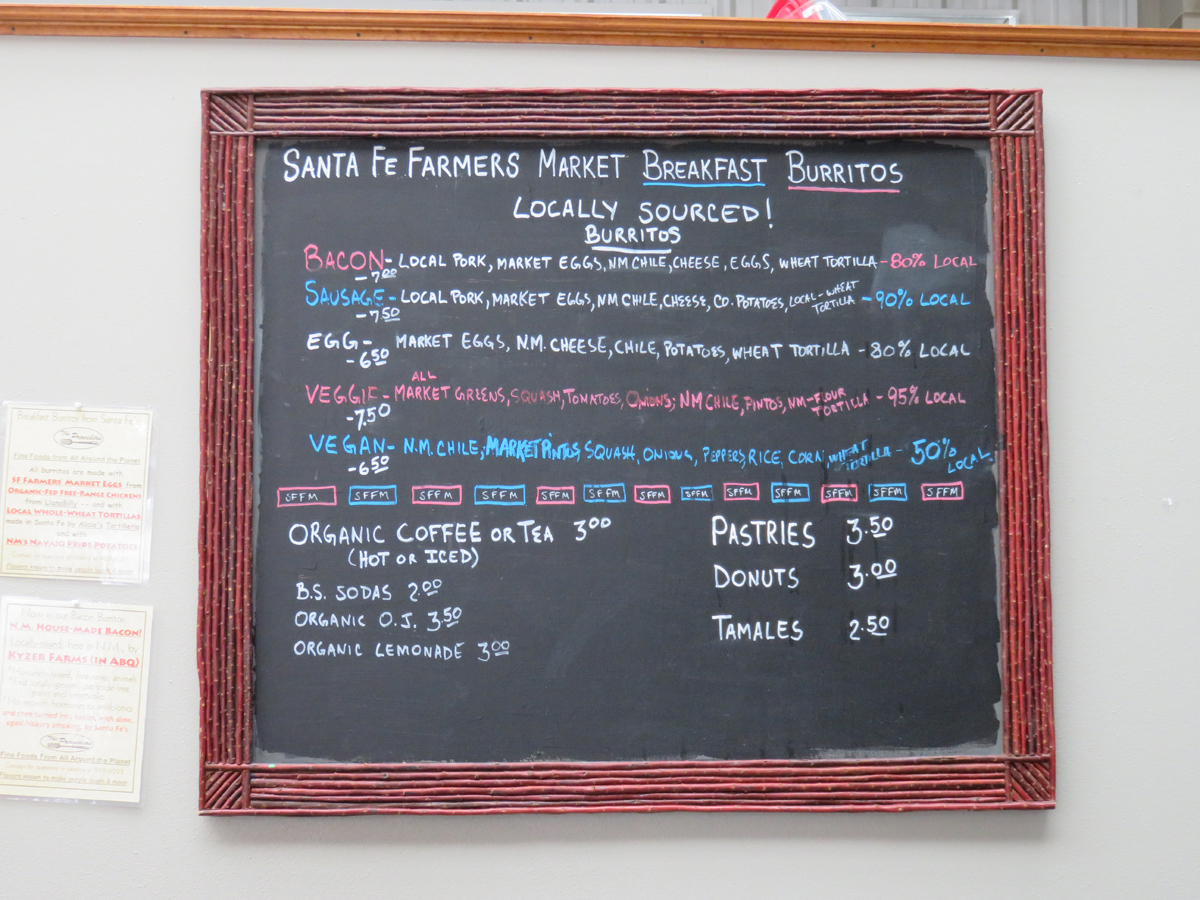 SANTA FE FARMERS MARKET BREAKFAST BURRITOS
LOCALLY SOURCED!
BURRITOS
BACON- LOCAL PORK, MARKET EGGS, NM CHILE, CHEESE, EGGS, WHEAT TORTILLA -80% LOCAL
-7.00
SAUSAGE- LOCAL PORK, MARKET EGGS, NM CHILE, CHEESE, CO. POTATOES, LOCAL-WHEAT TORTILLA -90% LOCAL
-7.50
EGG- MARKET EGGS, N.M. CHEESE, CHILE, POTATOES, WHEAT TORTILLA -80% LOCAL
-6.50
ALL
VEGGIE- MARKET GREENS, SQUASH, TOMATOES, ONIONS, NM CHILE, PINTOS, NM-FLOUR TORTILLA -95% LOCAL
-7.50
VEGAN- N.M. CHILE, MARKET PINTOS, SQUASH, ONIONS, PEPPERS, RICE, CORN, WHEAT TORTILLA - 50% LOCAL
-6.50
SFFM SFFM SFFM SFFM SFFM SFFM SFFM SFFM SFFM SFFM SFFM SFFM SFFM
ORGANIC COFFEE OR TEA 3.00
(HOT OR ICED)
B.S. SODAS 2.00
ORGANIC O.J. 3.50
ORGANIC LEMONADE 3.00
PASTRIES 3.50
DONUTS 3.00
TAMALES 2.50
Breakfast Burritos from Santa Fe's
Fine Foods from All Around the Planet
All burritos are made with
SF FARMERS MARKET EGGS from
ORGANIC-FED FREE-RANGE CHICKENS
and with
LOCAL WHOLE-WHEAT TORTILLAS
made in Santa Fe by Alicia's Tortilleria
and with
NM'S NAVAJO PRIDE POTATOES
N.M. HOUSE-MADE BACON!
KYZER FARMS (IN ABQ)
Fine Foods From All Around the Planet